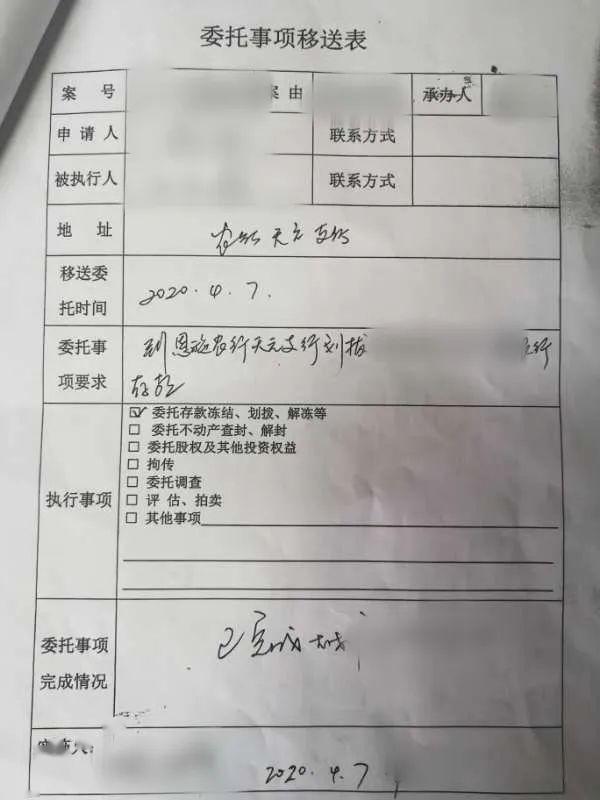 委托事项移送表
案 号 案 由 承办人
申 请 人 联系方式
被执行人 联系方式
地 址 农行天元支行
移送委托时间 2020.4.7.
委托事项要求 到恩施农行天元支行划拔 行
存款
执行事项
☑ 委托存款冻结、划拨、解冻等
☐ 委托不动产查封、解封
☐ 委托股权及其他投资权益
☐ 拘传
☐ 委托调查
☐ 评 估、拍卖
☐ 其他事项
委托事项完成情况 已完成
2020.4.7